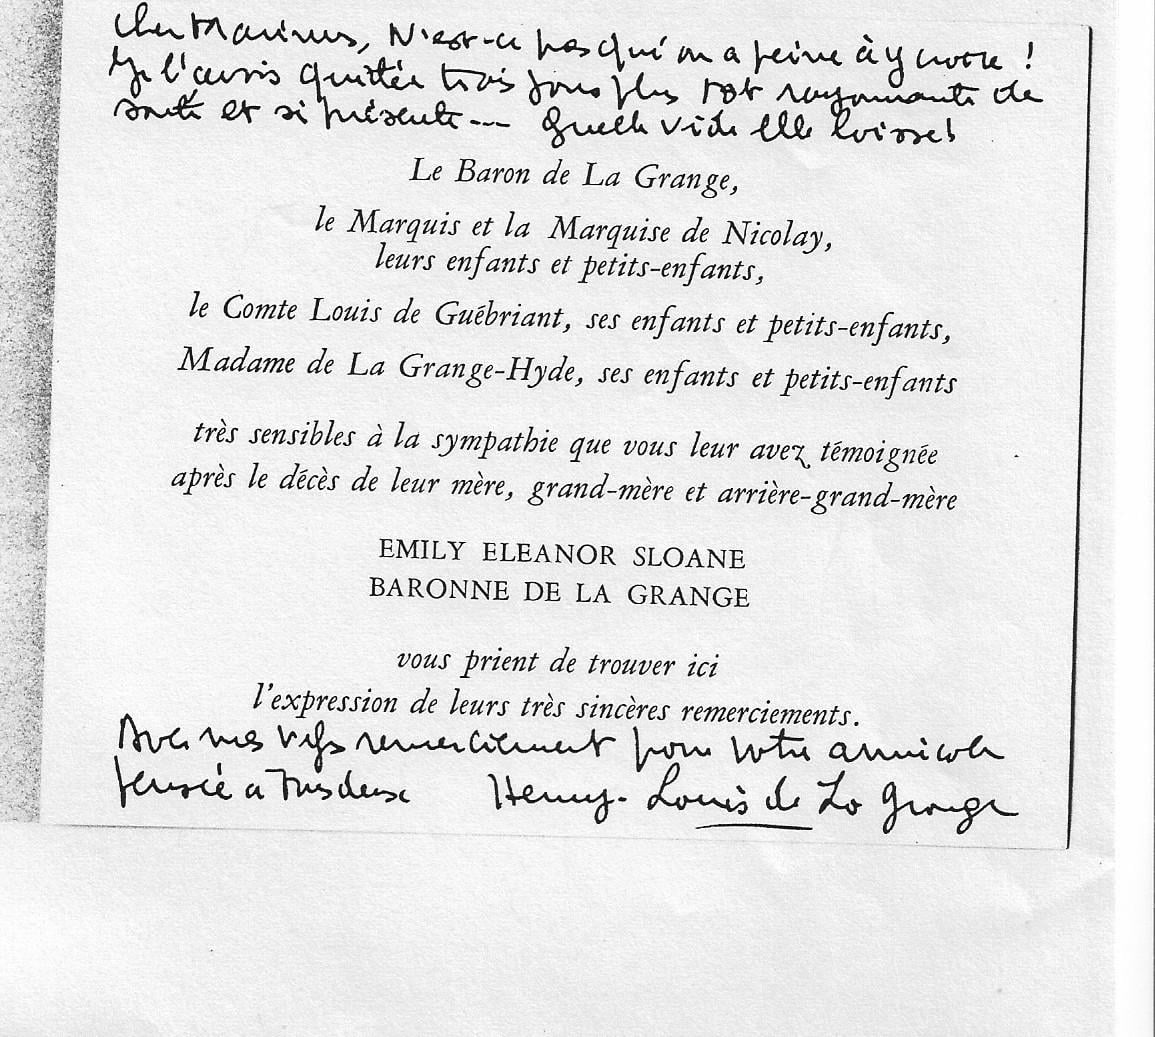 Cher Marinus, N'est-ce pas qu'on a peine à y croire !
Je l'avais quittée trois jours plus tôt rayonnante de
santé et si présente --- Quelle vide elle laisse !
Le Baron de La Grange,
le Marquis et la Marquise de Nicolay,
leurs enfants et petits-enfants,
le Comte Louis de Guébriant, ses enfants et petits-enfants,
Madame de La Grange-Hyde, ses enfants et petits-enfants
très sensibles à la sympathie que vous leur avez témoignée
après le décès de leur mère, grand-mère et arrière-grand-mère
EMILY ELEANOR SLOANE
BARONNE DE LA GRANGE
vous prient de trouver ici
l'expression de leurs très sincères remerciements.
Avec mes vifs remerciement pour votre amicale
pensée Henry-Louis de La Grange